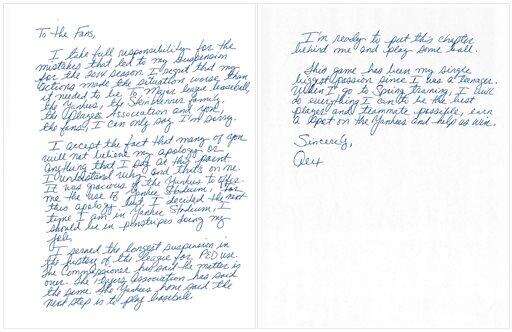 To the Fans,
I take full responsibility for the
mistakes that led to my suspension
for the 2014 season. I regret that my
actions made the situation worse than
it needed to be. To Major League Baseball,
the Yankees, the Steinbrenner family,
the Players Association and you,
the fans, I can only say I'm sorry.
I accept the fact that many of you
will not believe my apology or
anything that I say at this point.
I understand why and that's on me.
It was gracious of the Yankees to offer
me the use of Yankee Stadium, for
this apology but I decided the next
time I am in Yankee Stadium, I
should be in pinstripes doing my
job.
I served the longest suspension in
the history of the league for PED use.
The Commissioner has said the matter is
over. The Players Association has said
the same. The Yankees have said the
next step is to play baseball.
I'm ready to put this chapter
behind me and play some ball.
This game has been my single
biggest passion since I was a teenager.
When I go to Spring Training, I will
do everything I can to be the best
player and teammate possible, earn
a spot on the Yankees and help us win.
Sincerely,
Alex